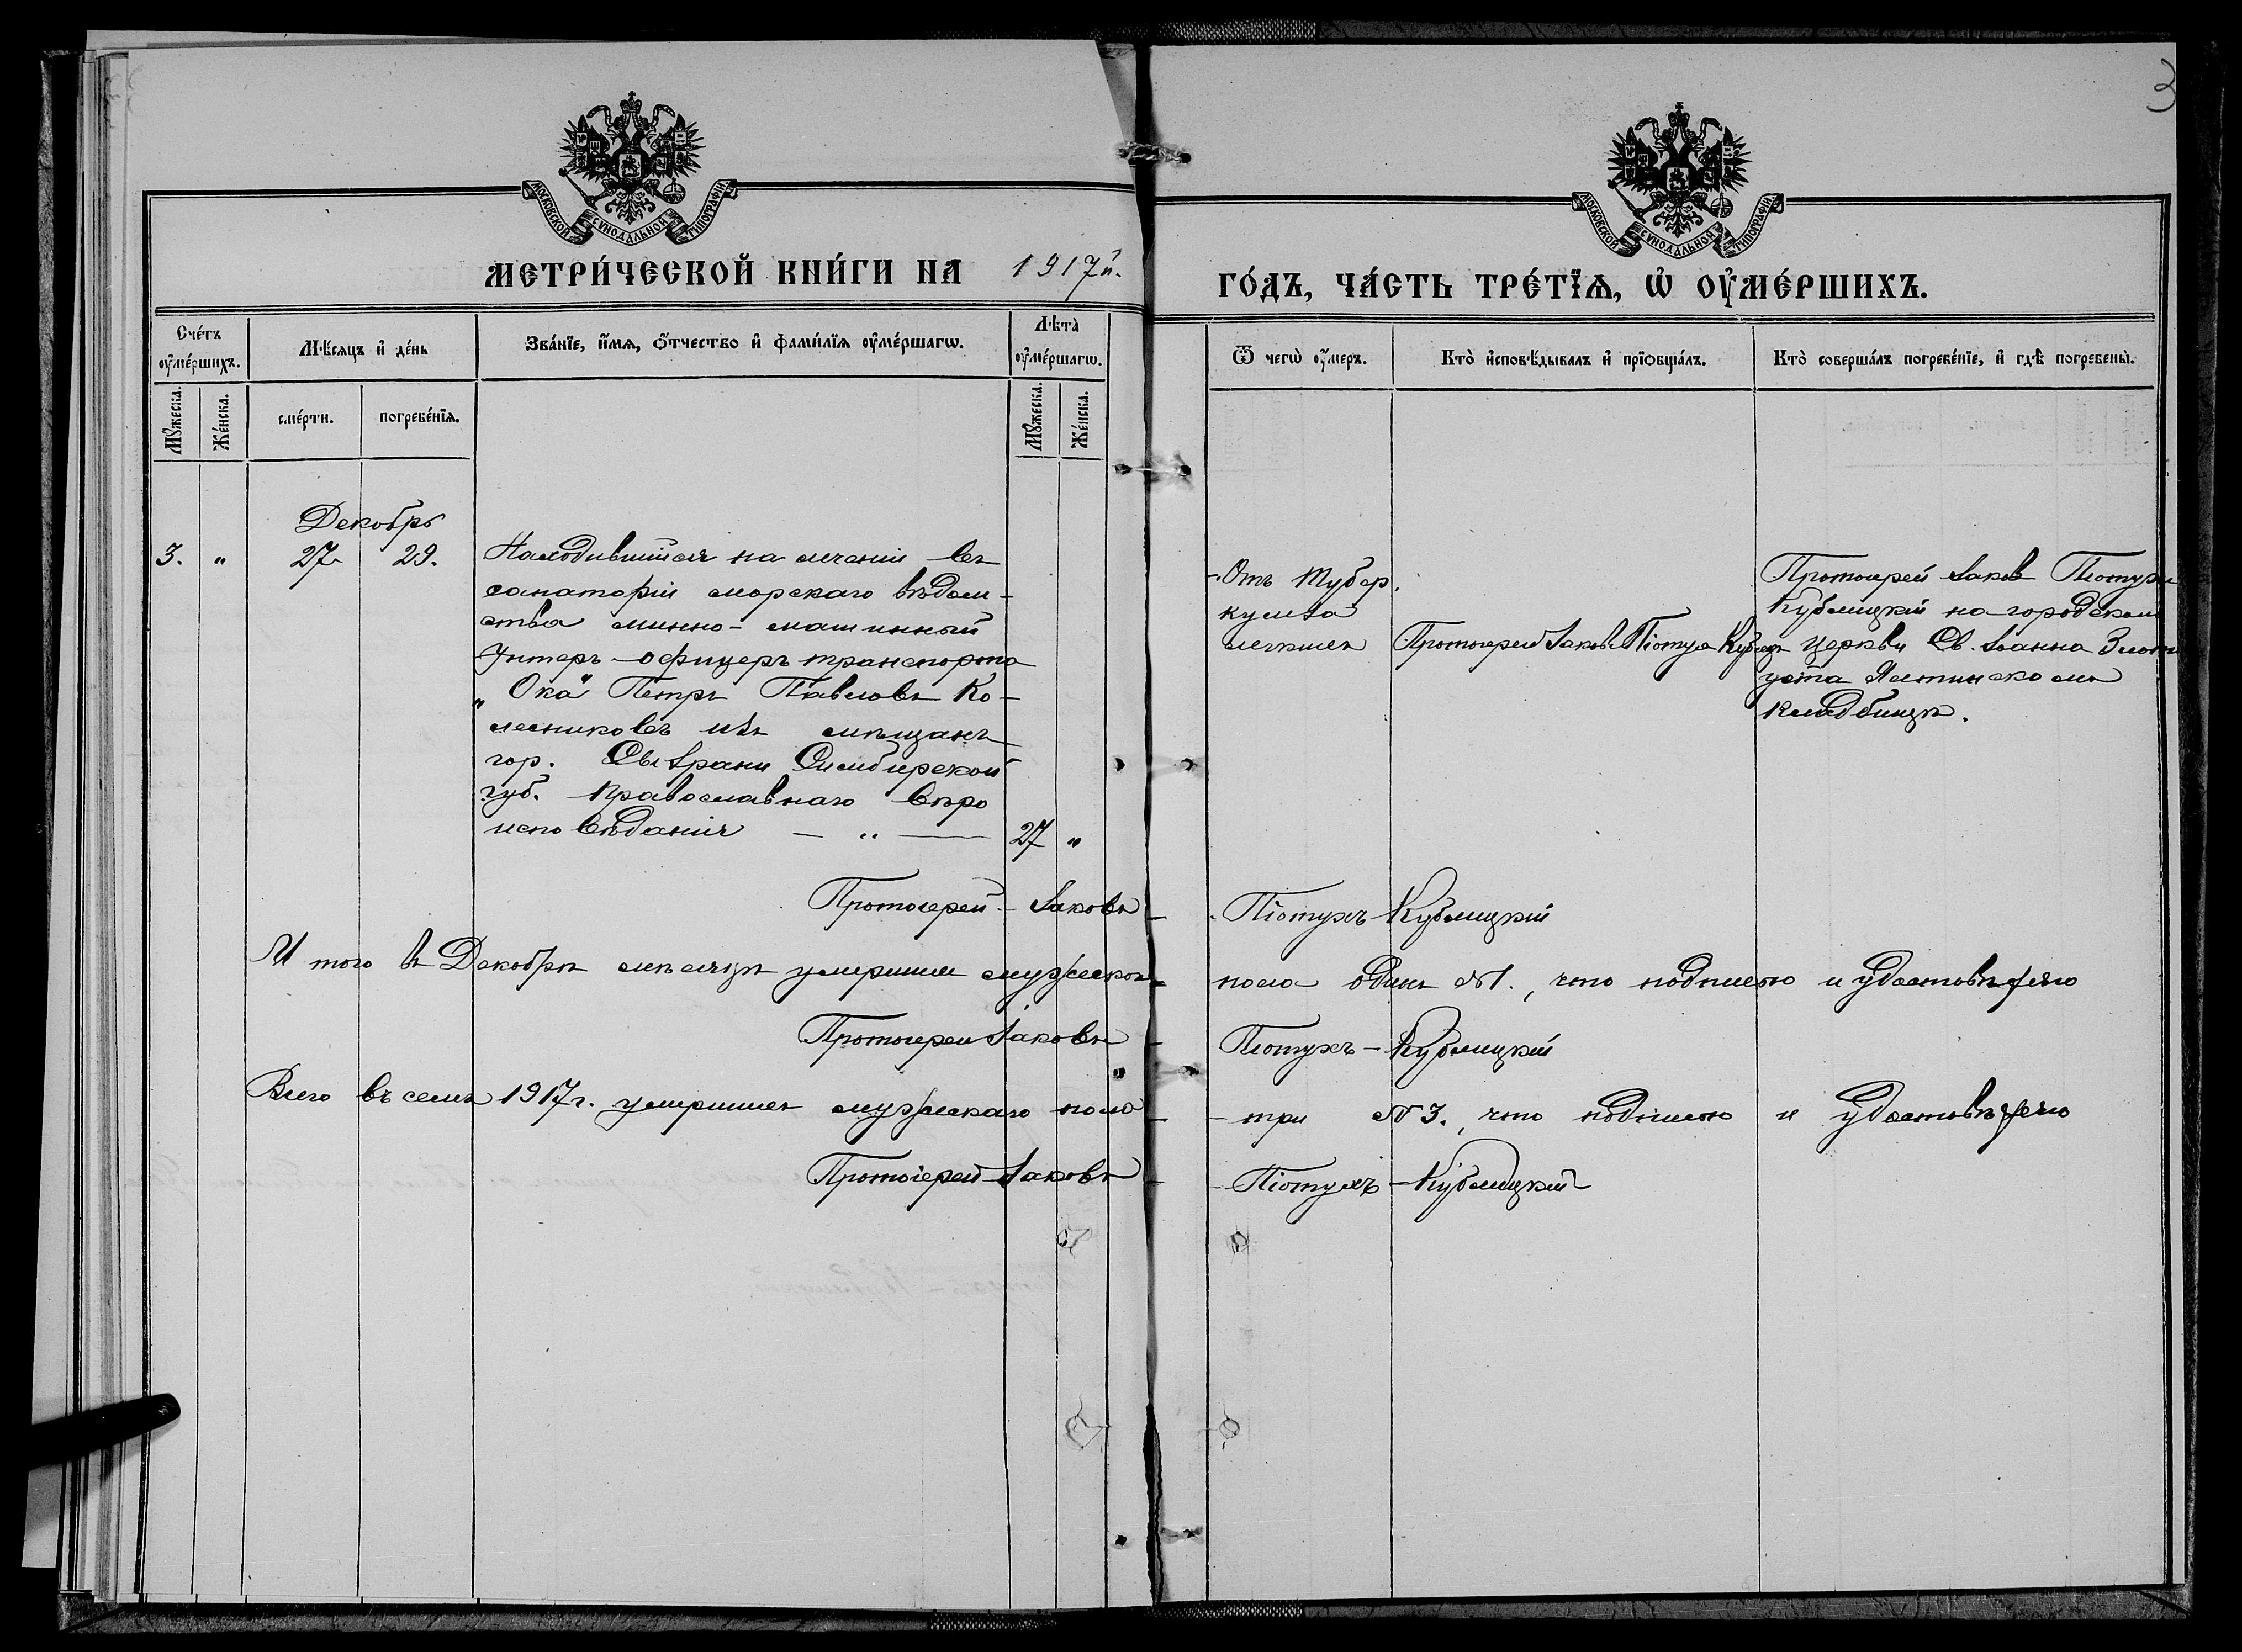 3
МОСКОВСКОЙ СѴНОДАЛЬНОЙ ТИПОГРАФІИ
МОСКОВСКОЙ СѴНОДАЛЬНОЙ ТИПОГРАФІИ
МЕТРИ́ЧЕСКОЙ КНИ́ГИ НА 1917й.
ГО́ДЪ, ЧА́СТЬ ТРЕ́ТЇѦ, Ѡ҆ ОУ҆МЕ́РШИХЪ.
Сче́тъ оу҆ме́ршихъ.
Мꙋ́жеска.
Же́нска.
Мѣ́сяцъ и҆ де́нь
сме́рти.
погребе́нїѧ.
Зва́нїе, и҆́мѧ, ѻ҆́тчество и҆ фами́лїѧ оу҆ме́ршагѡ.
Лѣ́та оу҆ме́ршагѡ.
Мꙋ́жеска.
Же́нска.
Ѿ чегѡ̀ оу҆́меръ.
Кто̀ и҆сповѣ́дывалъ и҆ прїѻбща́лъ.
Кто̀ соверша́лъ погребе́нїе, и҆ гдѣ̀ погребены̀.
Декабрь
3. „ 27 29.
Находившійся на леченіи въ
санаторіи морскаго вѣдом-
ства минно-машинный
Унтеръ-офицеръ транспорта
„Ока" Петръ Павловъ Ко-
лесниковъ изъ мѣщанъ
гор. Сызрани Симбирской
губ. Православнаго вѣро
исповѣданія — „ —
27 „
Отъ Тубер.
кулеза
легкихъ
Протоіерей Іаковъ Піотухъ Кублиц
Протоіерей Іаковъ Піотухъ
Кублицкій на городском
церкви Св. Іоанна Злато
уста Ялтинскомъ
кладбищѣ.
Протоіерей Іаковъ Піотухъ-Кублицкій
И того въ Декабрѣ мѣсяцѣ умершихъ мужскаго пола одинъ №1., что подписью и удостовѣряю
Протоіерей Іаковъ Піотухъ-Кублицкій
Всего въ семъ 1917г. умершихъ мужскаго пола три №3., что подписью и удостовѣряю
Протоіерей Іаковъ Піотухъ-Кублицкій